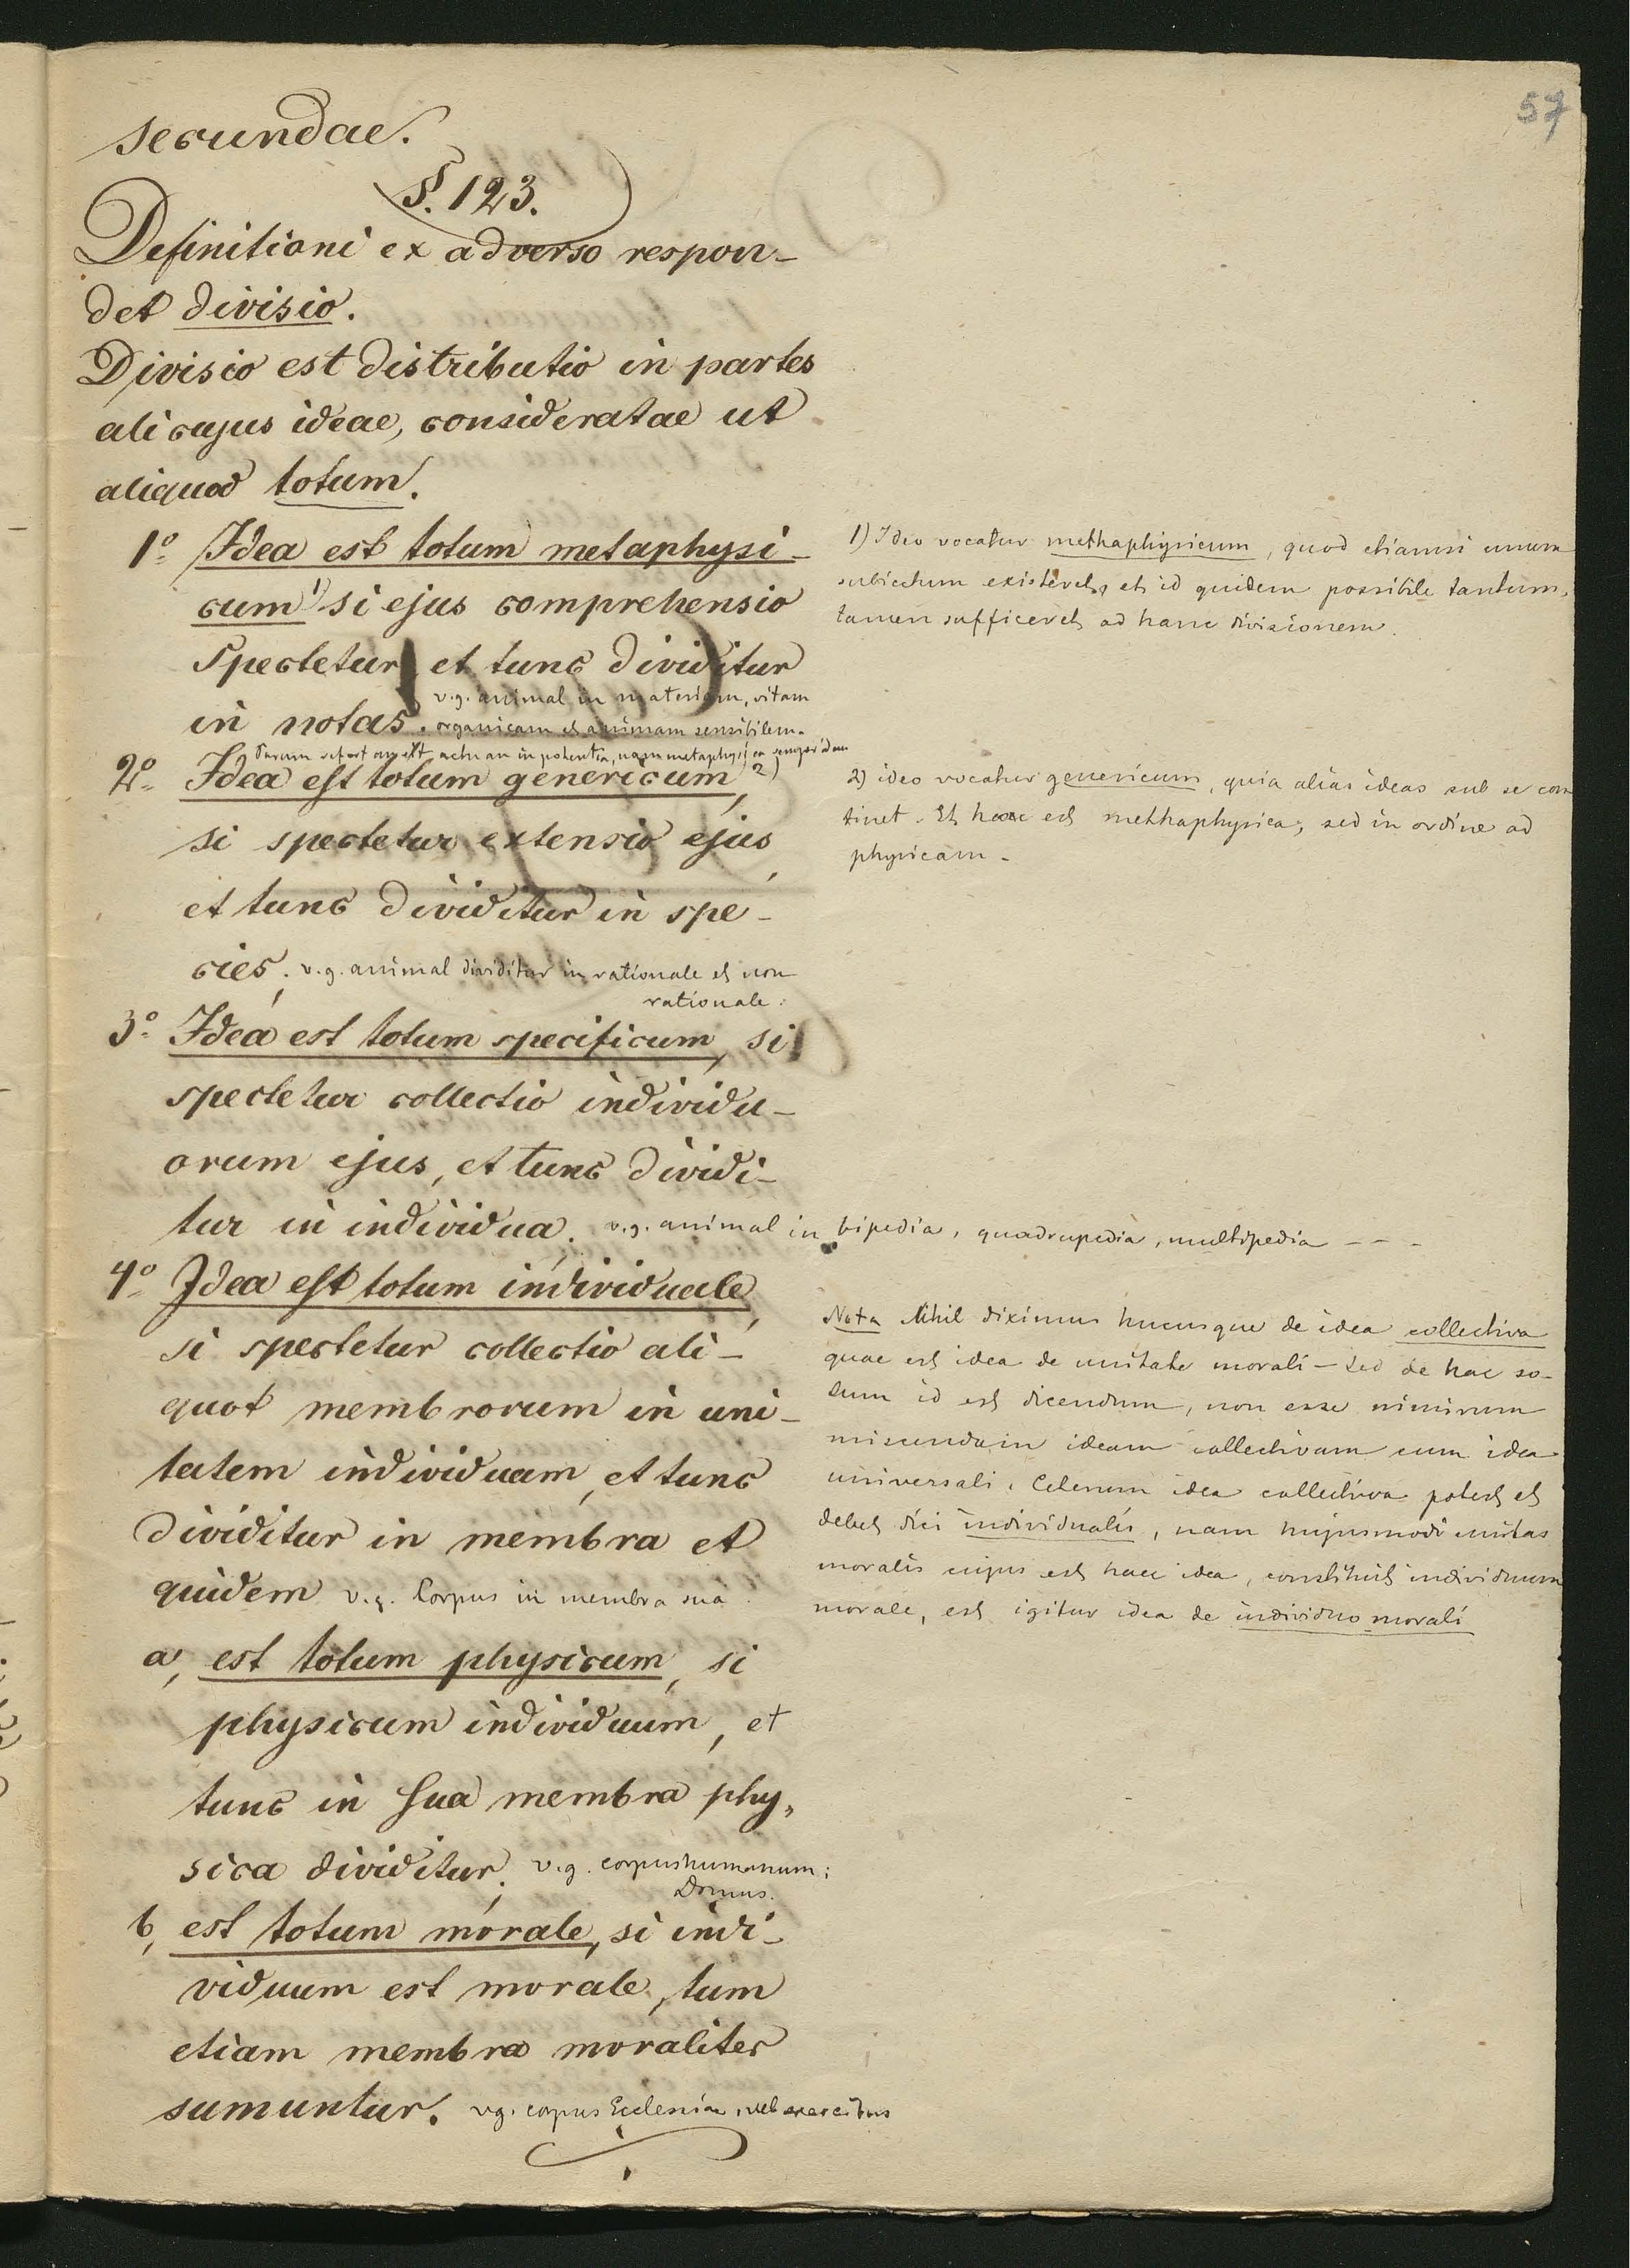 57
secundae.
§. 123.
Definitioni ex adverso respon-
det divisio.
Divisio est distributio in partes
alicujus ideae, consideratae ut
aliquod totum.
1º Idea est totum metaphysi-
cum 1) si ejus comprehensio
Spectetur, et tunc dividitur
v.g. animal in materiam, vitam
in notas. organicam et animam sensibilem.
Parum refert an est actu an in potentia, nam metaphysica semper idem
2º Idea est totum genericum, 2)
si spectetur extensio ejus,
et tunc dividitur in spe-
cies. v.g. animal dividitur in rationale et non
rationale.
3º Idea est totum specificum, si
spectetur collectio individu-
orum ejus, et tunc dividi-
tur in individua. v.g. animal in bipedia, quadrupedia, multipedia - - -
4º Idea est totum individuale,
si spectetur collectio ali-
quot membrorum in uni-
tatem individuam, et tunc
dividitur in membra et
quidem v.g. Corpus in membra sua.
a, est totum physicum, si
physicum individuum, et
tunc in sua membra phy,
sica dividitur. v.g. corpus humanum;
Domus.
b, est totum morale, si indi-
viduum est morale, tum
etiam membra moraliter
sumuntur. vg. corpus Ecclesiae, vel exercitus
1) Ideo vocatur methaphysicum, quod etiamsi unum
subiectum existeret, et id quidem possibile tantum,
tamen sufficeret ad hanc divisionem.
2) ideo vocatur genericum, quia alias ideas sub se con
tinet. Et haec est methaphysica, sed in ordine ad
physicam -
Nota Nihil diximus hucusque de idea collectiva
quae est idea de unitate morali - sed de hac so-
lum id est dicendum, non esse nimirum
miscendam ideam collectivam cum idea
universali. Ceterum idea collectiva potest et
debet dici individualis, nam hujusmodi unitas
moralis cujus est haec idea, constituit individuum
morale, est igitur idea de individuo morali